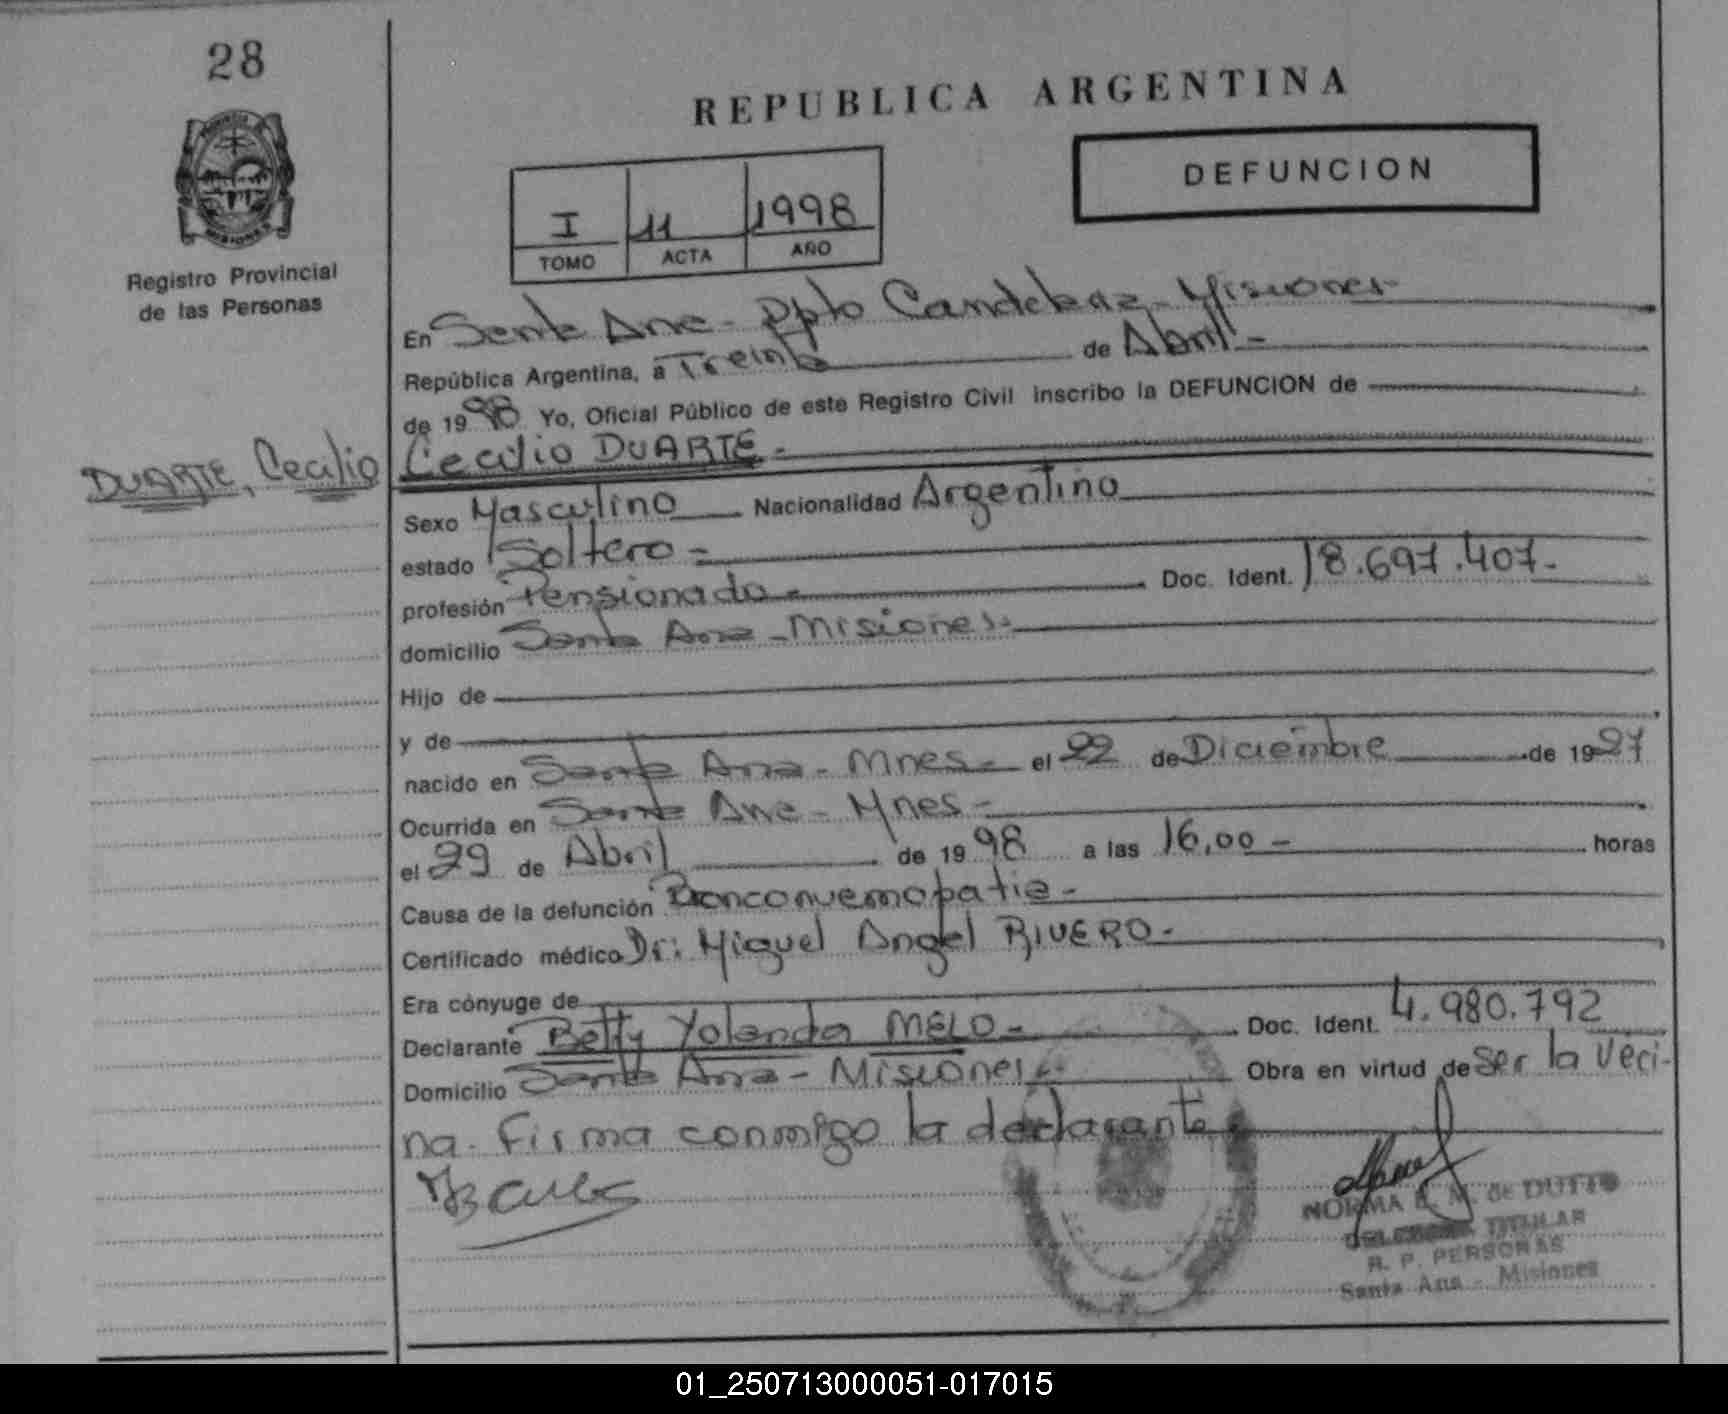 28
REPUBLICA ARGENTINA
DEFUNCION
I 11 1998
TOMO ACTA AÑO
PROVINCIA
MISIONES
Registro Provincial
de las Personas
En Santa Ana - Dpto Candelaria - Misiones -
República Argentina, a Treinta de Abril -
de 1998 Yo, Oficial Público de este Registro Civil inscribo la DEFUNCION de
DUARTE, Cecilio
Cecilio DUARTE -
Sexo Masculino Nacionalidad Argentino
estado Soltero -
profesión Pensionado - Doc. Ident. 18.697.407 -
domicilio Santa Ana - Misiones -
Hijo de
y de
nacido en Santa Ana - Mnes - el 22 de Diciembre de 1927
Ocurrida en Santa Ana - Mnes -
el 29 de Abril de 1998 a las 16,00 - horas
Causa de la defunción Bronconuemopatia -
Certificado médico Dr: Miguel Angel RIVERO -
Era cónyuge de
Declarante Betty Yolanda MELO - Doc. Ident. 4.980.792
Domicilio Santa Ana - Misiones - Obra en virtud de ser la veci-
na - Firma conmigo la declarante
NORMA M. de DUTTO
TITULAR
R. P. PERSONAS
Santa Ana - Misiones
01_250713000051-017015